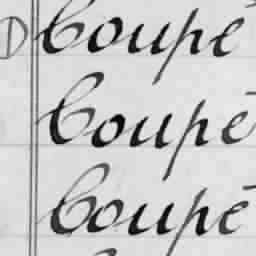 D Coupé
Coupé
Coupé